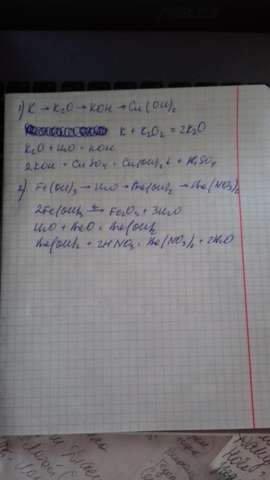 1) K → K2O → KOH → Cu(OH)2
K + K2O2 = 2K2O
K2O + H2O = KOH
2KOH + CuSO4 = Cu(OH)2↓ + K2SO4
2) Fe(OH)3 → H2O → Ba(OH)2 → Ba(NO3)2
2Fe(OH)3 → Fe2O3 + 3H2O
H2O + BaO = Ba(OH)2
Ba(OH)2 + 2HNO3 = Ba(NO3)2 + 2H2O